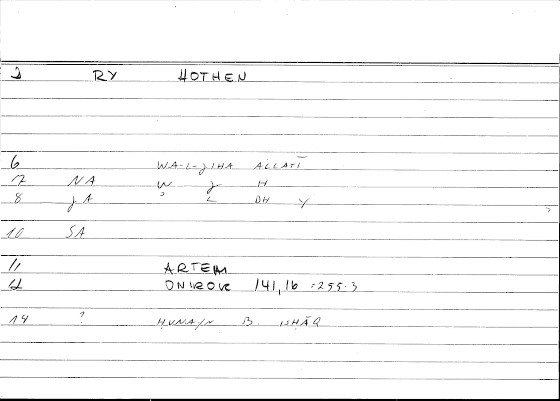 2 RY HOTHEN
6 WA-L-JIHA ALLATĪ
7 NA W J H
8 JA ʾ L DH Y
10 SA
11 ARTEM
12 ONIROK 141,16 =255.3
14 ? ḤUNAYN B. ISḤĀQ